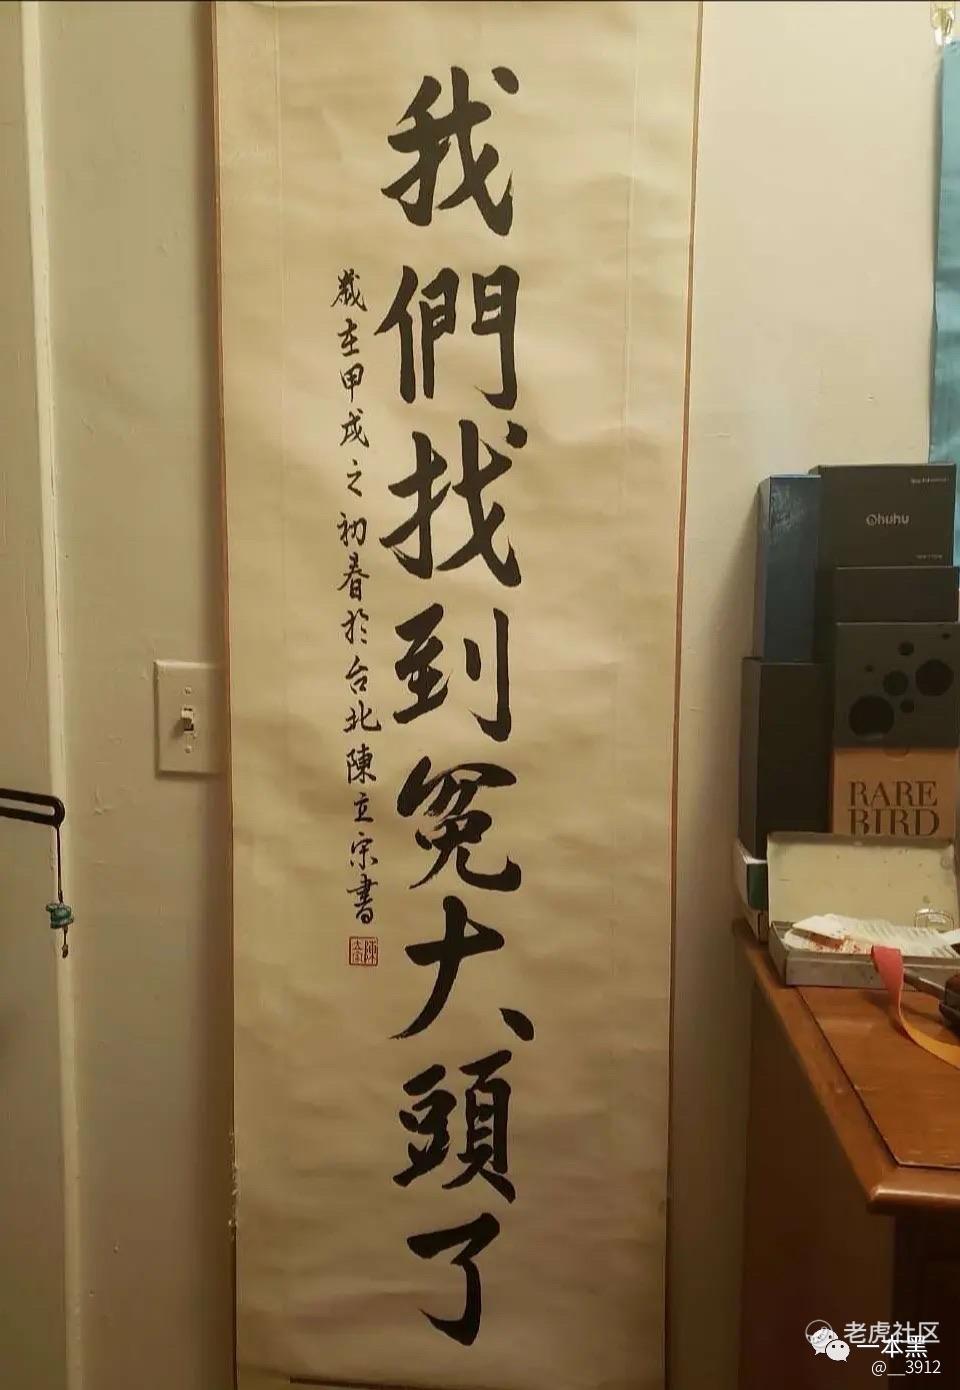 我們找到冤大頭了
歲在甲戌之初春於台北陳立宗書
Ohuhu
RARE
BIRD
老虎社区
一本黑
@__3912